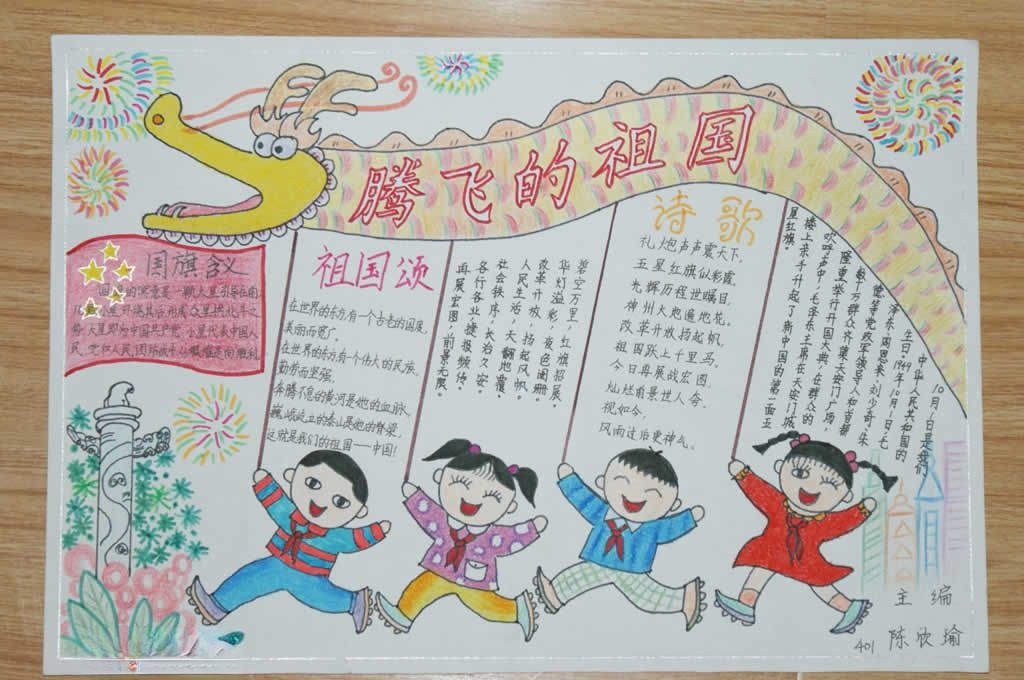 腾飞的祖国
国旗含义
国旗的寓意是一颗大星引导在前,
小星环绕其后,用众星拱北斗之
势,大星即为中国共产党,小星代表中国人
民,党和人民团结战斗从艰难走向胜利。
祖国颂
在世界的东方有一个古老的国度,
美丽而宽广。
在世界的东方有一个伟大的民族,
勤劳而坚强。
奔腾不息的黄河是她的血脉,
巍峨屹立的泰山是她的脊梁,
这就是我们的祖国——中国!
碧空万里,红旗招展。
华灯溢彩,夜色阑珊。
改革开放,扬起风帆。
人民生活,天翻地覆。
社会秩序,长治久安。
各行各业,捷报频传。
再展宏图,前景无限。
诗歌
礼炮声声震天下,
五星红旗似彩霞。
光辉历程世瞩目,
神州大地遍地花。
改革开放扬起帆,
祖国跃上千里马。
今日再展战宏图,
灿烂前景世人夸。
视如今,
风雨过后更神么。
10月1日是我们
中华人民共和国的
生日,1949年10月1日,毛
泽东、周恩来、刘少奇、朱
德等党政军领导人和首都
数十万群众齐聚天安门广场,
隆重举行开国大典,在群众的
欢呼声中,毛泽东主席在天安门城
楼上亲手升起了新中国的第一面五
星红旗。
主编
401 陈欣瑜